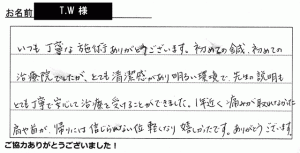 お名前 T.W 様
いつも丁寧な施術ありがとうございます。初めての鍼、初めての
治療院でしたが、とても清潔感があり明るい環境で、先生の説明も
とても丁寧で安心して治療を受けることができました。1年近く痛みが取れなかった
肩や首が、帰りには信じられない位軽くなり嬉しかったです。ありがとうございます。
ご協力ありがとうございました！